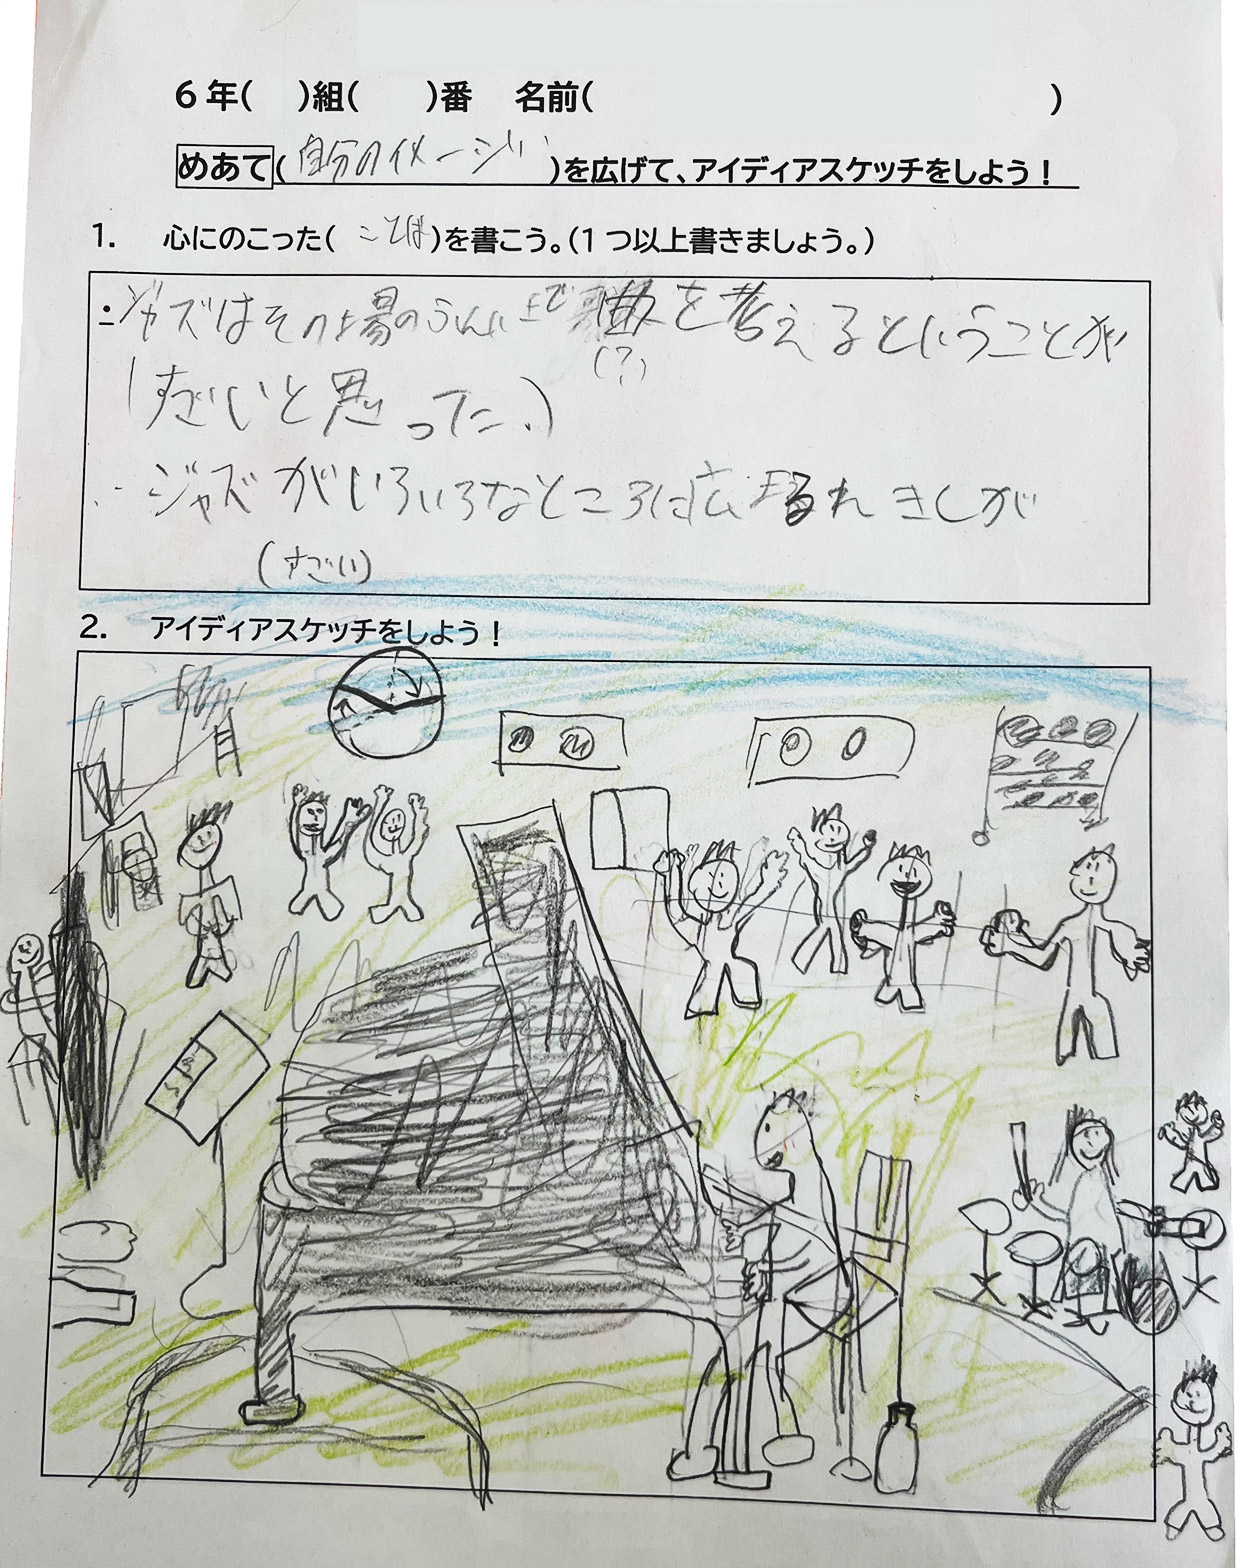 6年(　)組(　)番　名前(　)
めあて(自分のイメージ)を広げて、アイディアスケッチをしよう！
1.　心にのこった(ことば)を書こう。(1つ以上書きましょう。)
・ジャズはその場のうんで曲を考えるということが
(?)
(すごいと思った.)
・ジャズがいろいろなところに広まるれきしが
(すごい)
2.　アイディアスケッチをしよう！